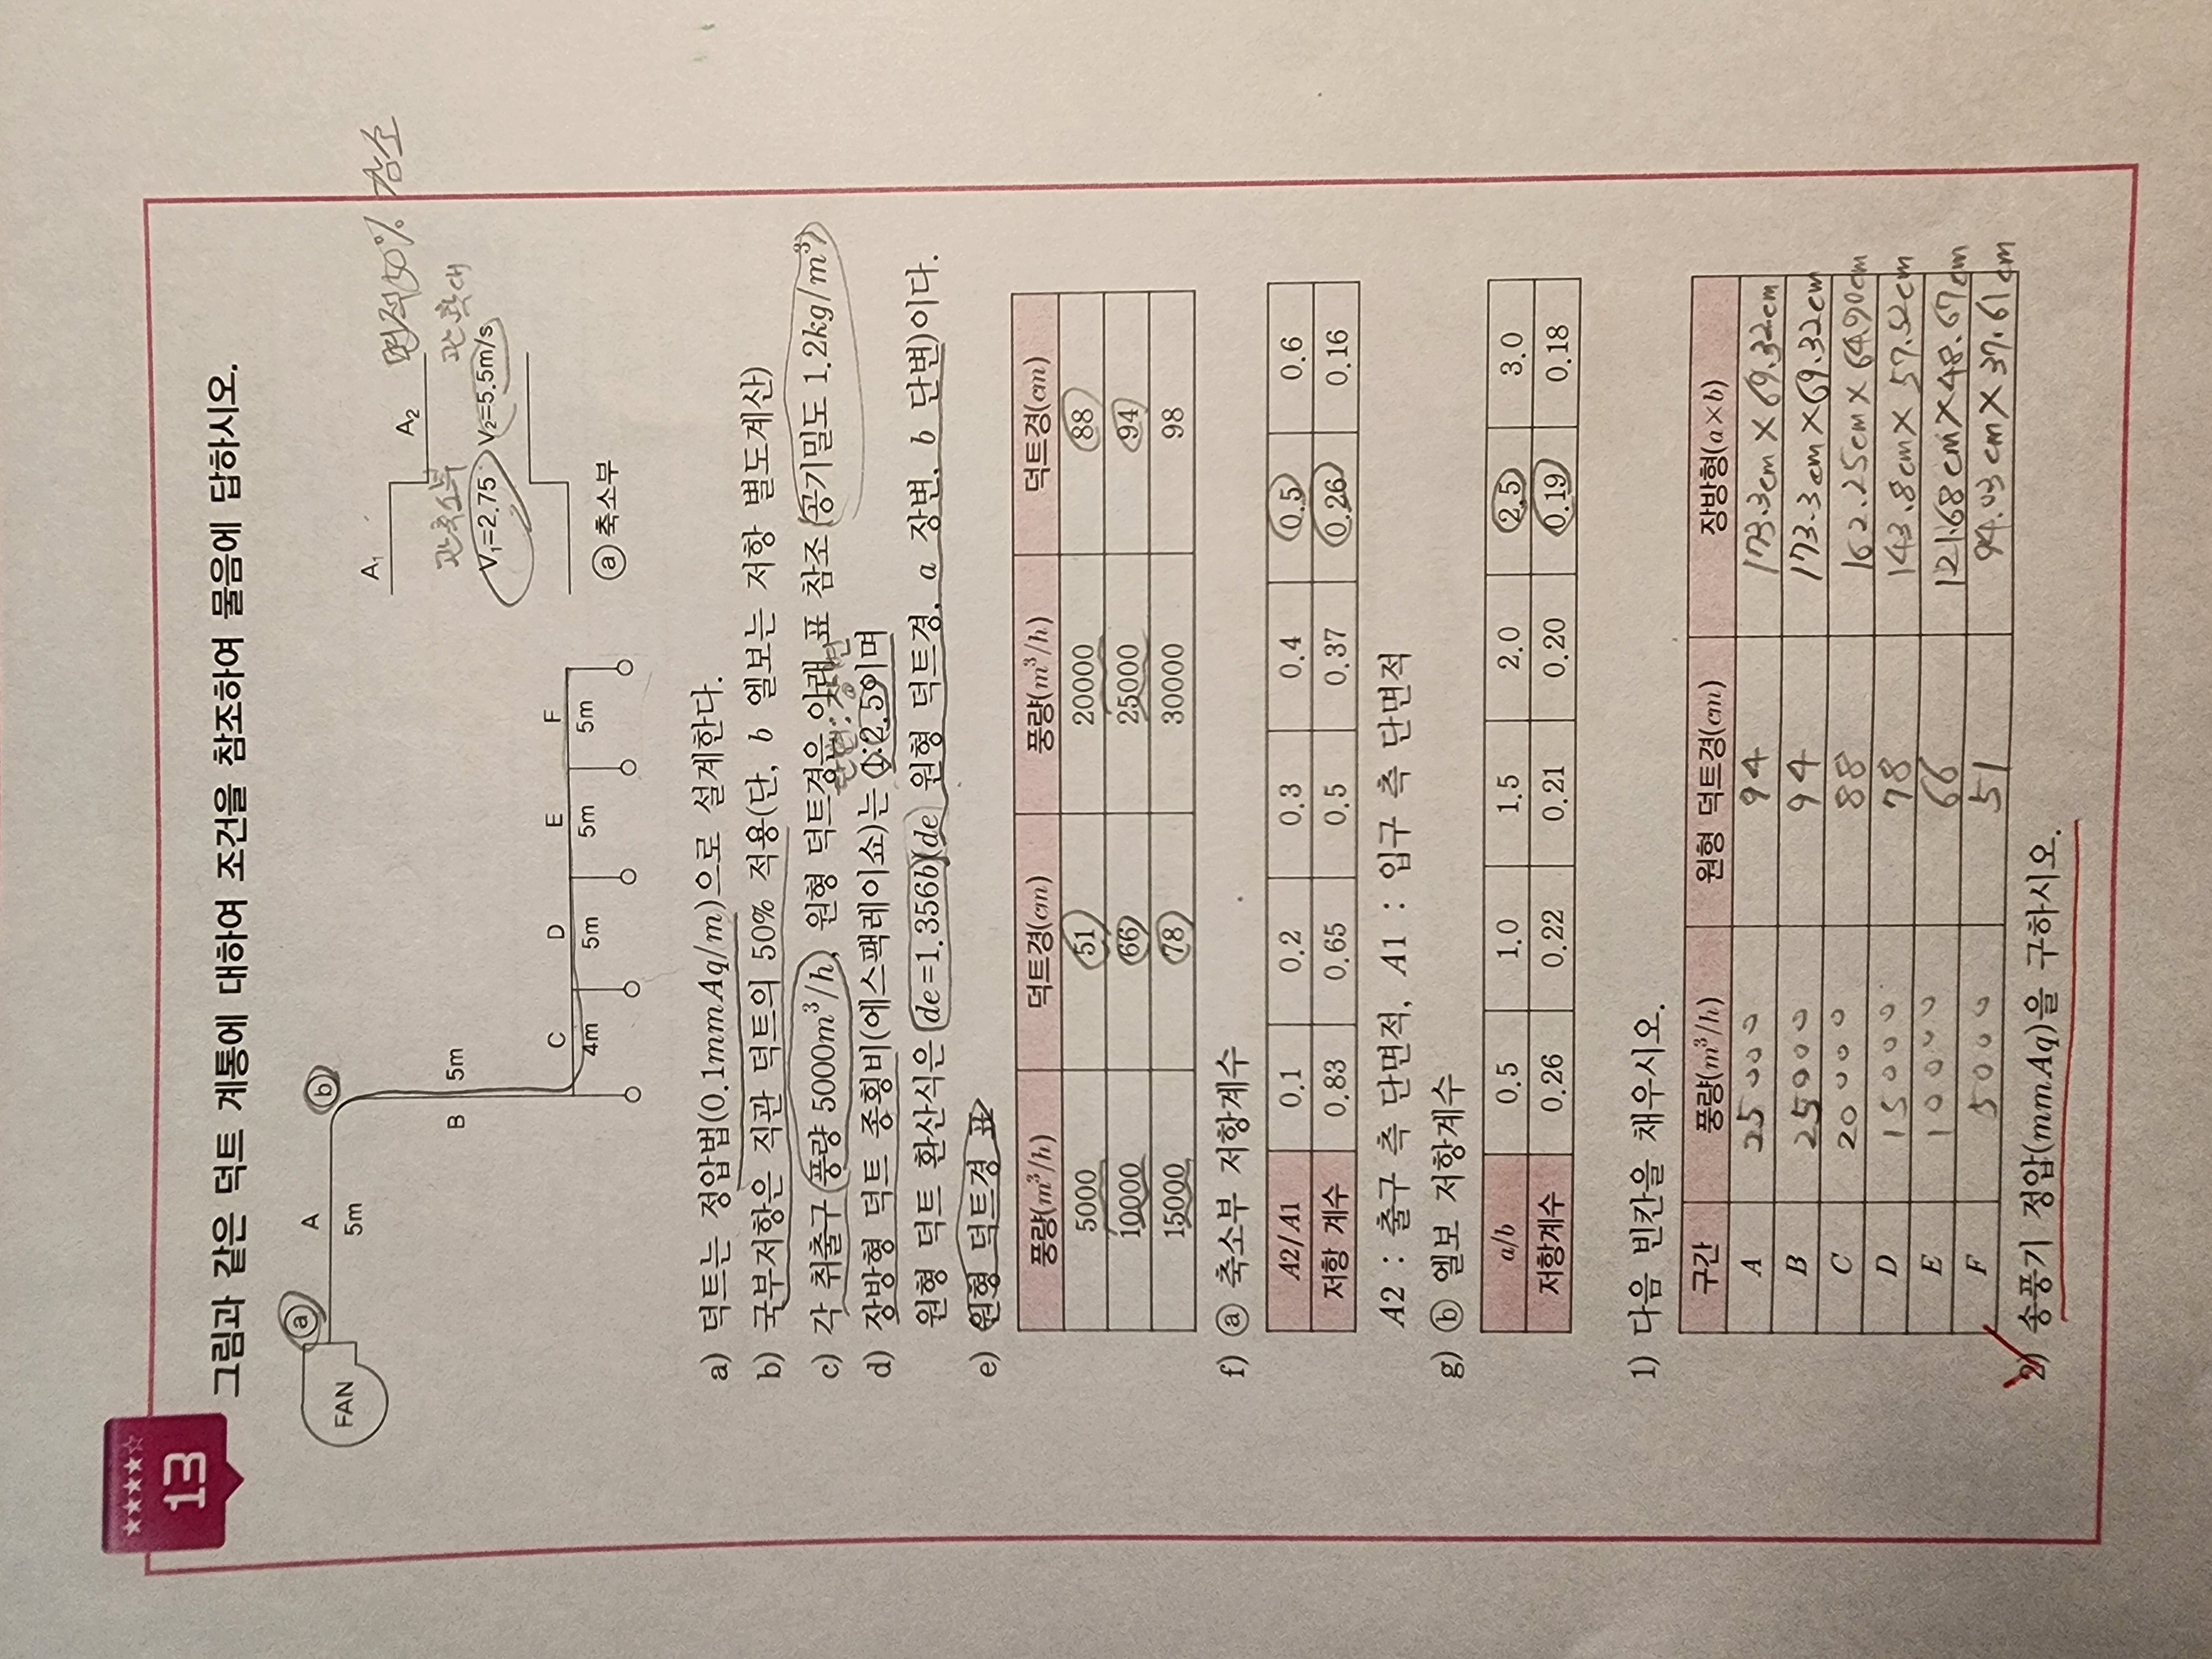 ★★★★☆
13
그림과 같은 덕트 계통에 대하여 조건을 참조하여 물음에 답하시오.
FAN
ⓐ
A
5m
ⓑ
B
5m
C
4m
D
5m
E
5m
F
5m
A₁
A₂
관축소부
관 확대
V₁=2.75
V₂=5.5m/s
ⓐ 축소부
면적 50% 감소
a) 덕트는 정압법(0.1mmAq/m)으로 설계한다.
b) 국부저항은 직관 덕트의 50% 적용(단, b 엘보는 저항 별도계산)
c) 각 취출구 풍량 5000m³/h, 원형 덕트경은 아래 표 참조 (공기밀도 1.2kg/m³)
d) 장방형 덕트 종횡비(에스팩레이쇼)는 1:2.5이며
원형 덕트 환산식은 de=1.356b(de 원형 덕트경, a 장변, b 단변)이다.
e) 원형 덕트경 표
풍량(m³/h) 덕트경(cm) 풍량(m³/h) 덕트경(cm)
5000 51 20000 88
10000 66 25000 94
15000 78 30000 98
f) ⓐ 축소부 저항계수
A2/A1 0.1 0.2 0.3 0.4 0.5 0.6
저항 계수 0.83 0.65 0.5 0.37 0.26 0.16
A2 : 출구 측 단면적, A1 : 입구 측 단면적
g) ⓑ 엘보 저항계수
a/b 0.5 1.0 1.5 2.0 2.5 3.0
저항계수 0.26 0.22 0.21 0.20 0.19 0.18
1) 다음 빈칸을 채우시오.
구간 풍량(m³/h) 원형 덕트경(cm) 장방형(a×b)
A 25000 94 173.3cm × 69.32cm
B 25000 94 173.3cm × 69.32cm
C 20000 88 162.25cm × 64.90cm
D 15000 78 143.8cm × 57.52cm
E 10000 66 121.68cm × 48.67cm
F 5000 51 94.03cm × 37.61cm
2) 송풍기 정압(mmAq)을 구하시오.